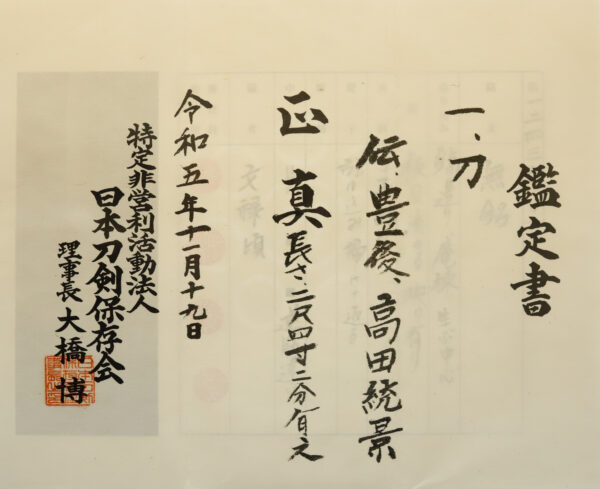 鑑定書
一、刀
伝、豊後、高田統景
正真 長さ、二尺四寸二分有之
令和五年十一月十九日
特定非営利活動法人
日本刀剣保存会
理事長 大橋博